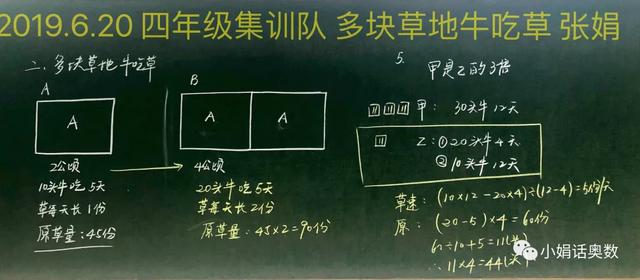 2019.6.20 四年级集训队 多块草地牛吃草 张娟
二、多块草地牛吃草
A
A
2公顷
10头牛吃5天
草每天长1份
原草量：45份
B
A
A
4公顷
20头牛吃5天
草每天长2份
原草量：45×2=90份
5.
甲是乙的3倍
甲：30头牛 12天
乙：①20头牛4天
②10头牛12天
草速：(10×12-20×4)÷(12-4)=5份/天
原：(20-5)×4=60份
60÷10+5=11(头)
∴11×4=44(头)
小娟话奥数